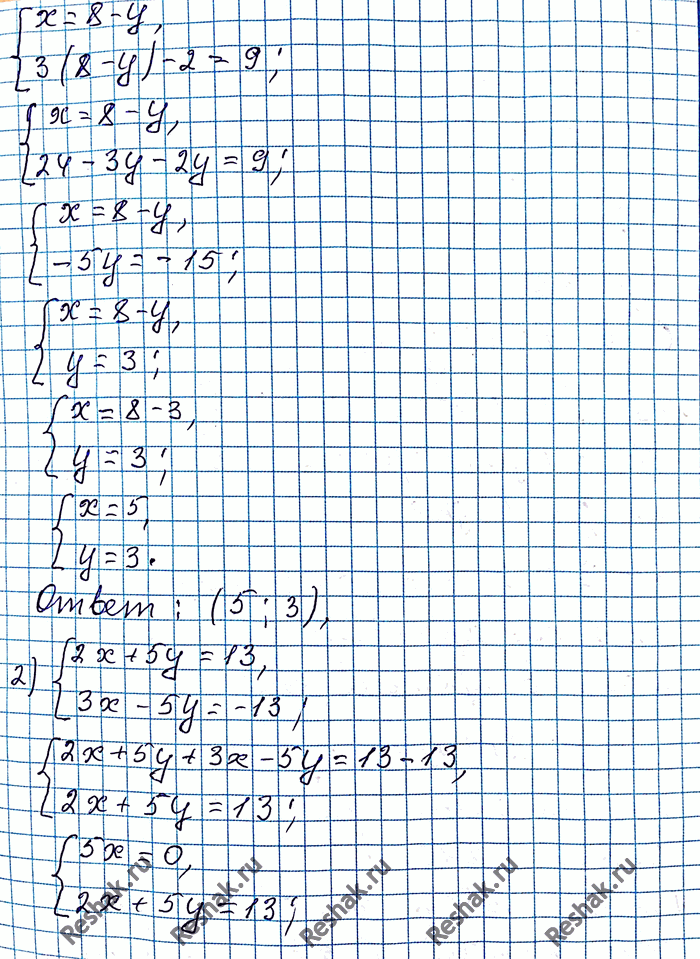 x = 8 - y,
3(8 - y) - 2 = 9;
x = 8 - y,
24 - 3y - 2y = 9;
x = 8 - y,
-5y = -15;
x = 8 - y,
y = 3;
x = 8 - 3,
y = 3;
x = 5,
y = 3.
Ответ: (5; 3),
2) 2x + 5y = 13,
3x - 5y = -13;
2x + 5y + 3x - 5y = 13 - 13,
2x + 5y = 13;
5x = 0,
2x + 5y = 13;
Reshak.ru Reshak.ru Reshak.ru Reshak.ru Reshak.ru